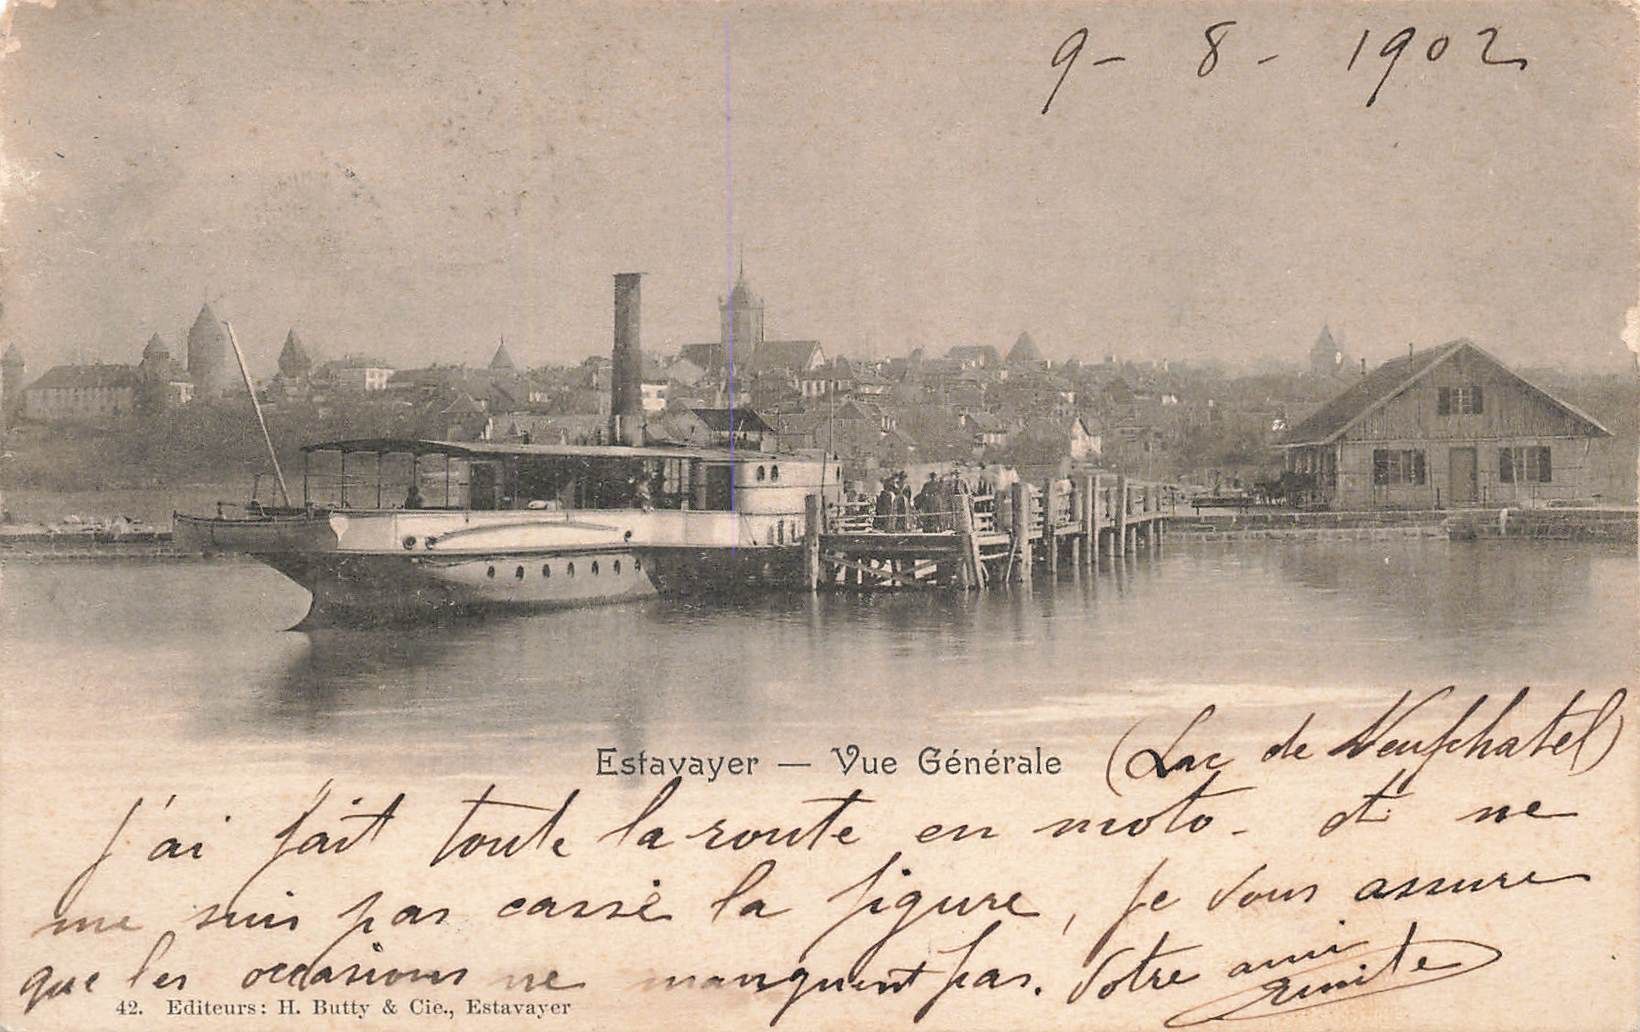 9 - 8 - 1902
Estavayer — Vue Générale (Lac de Neufchatel)
J'ai fait toute la route en moto - et ne
me suis pas cassé la figure, je vous assure
que les occasions ne manquent pas. Votre ami
42. Editeurs: H. Butty & Cie., Estavayer